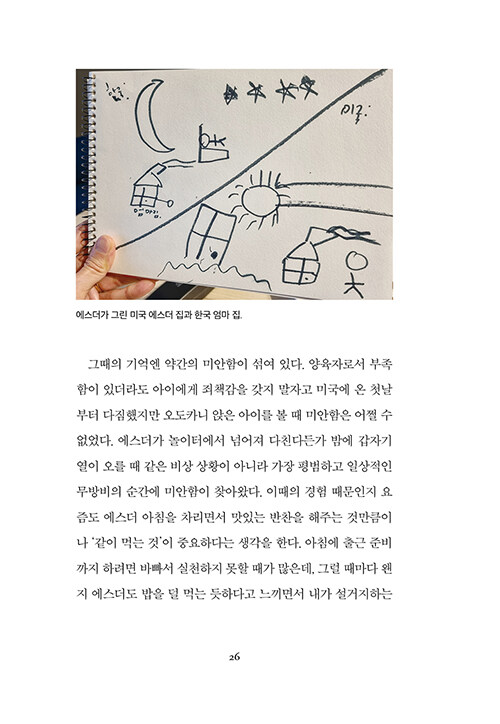 한국
미국
엄마집
에스더가 그린 미국 에스더 집과 한국 엄마 집.
그때의 기억엔 약간의 미안함이 섞여 있다. 양육자로서 부족
함이 있더라도 아이에게 죄책감을 갖지 말자고 미국에 온 첫날
부터 다짐했지만 오도카니 앉은 아이를 볼 때 미안함은 어쩔 수
없었다. 에스더가 놀이터에서 넘어져 다친다든가 밤에 갑자기
열이 오를 때 같은 비상 상황이 아니라 가장 평범하고 일상적인
무방비의 순간에 미안함이 찾아왔다. 이때의 경험 때문인지 요
즘도 에스더 아침을 차리면서 맛있는 반찬을 해주는 것만큼이
나 ‘같이 먹는 것’이 중요하다는 생각을 한다. 아침에 출근 준비
까지 하려면 바빠서 실천하지 못할 때가 많은데, 그럴 때마다 왠
지 에스더도 밥을 덜 먹는 듯하다고 느끼면서 내가 설거지하는
26